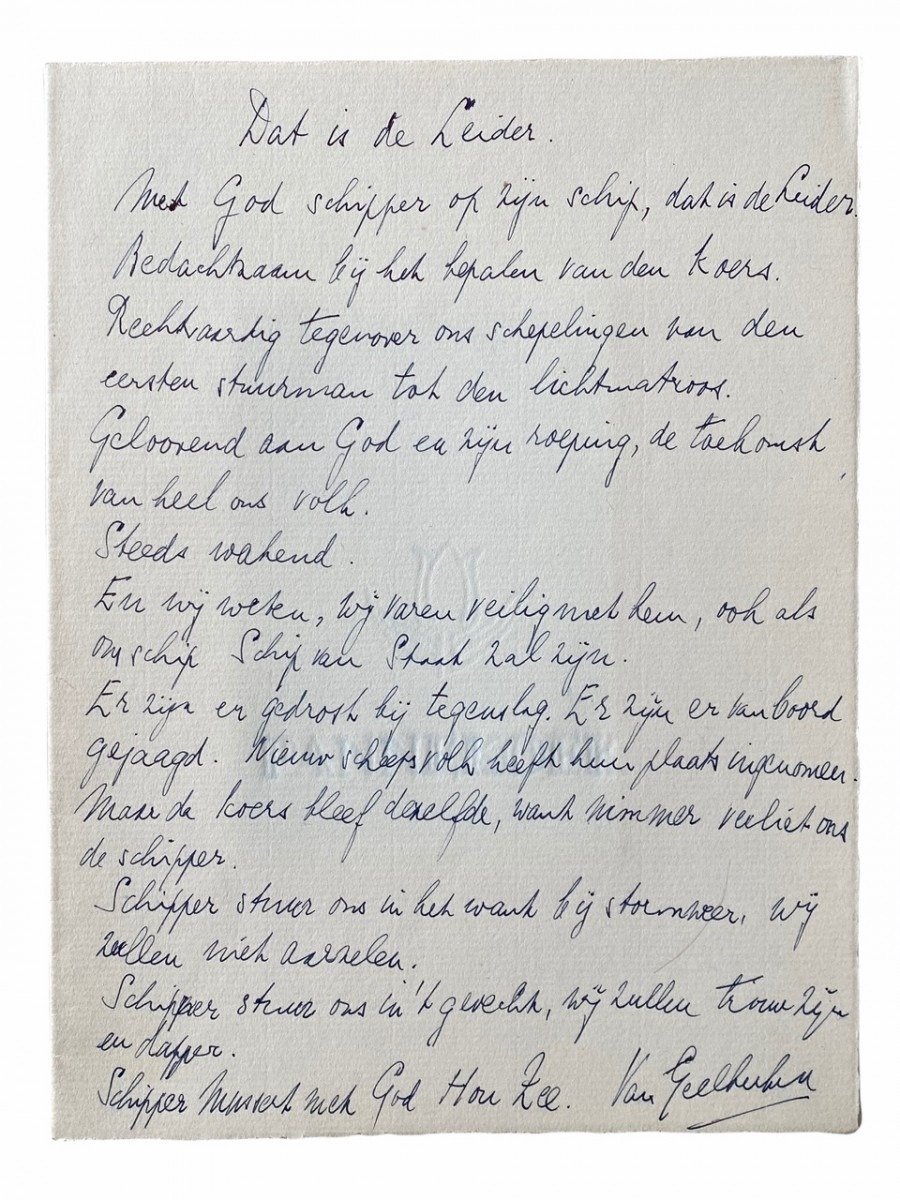 Dat is de Leider.
Met God schipper op zijn schip, dat is de Leider.
Bedachtzaam bij het bepalen van den koers.
Rechtvaardig tegenover ons schepelingen van den
eersten stuurman tot den lichtmatroos.
Geloovend aan God en zijn roeping, de toekomst
van heel ons volk.
Steeds wakend.
En wij weten, wij varen veilig met hem, ook als
ons schip Schip van Staat zal zijn.
Er zijn er gedrost bij tegenslag. Er zijn er van boord
gejaagd. Nieuw scheepsvolk heeft hun plaats ingenomen.
Maar de koers bleef dezelfde, want nimmer verliet ons
de schipper.
Schipper stuur ons in het want bij stormweer, wij
zullen niet aarzelen.
Schipper stuur ons in 't gevecht, wij zullen trouw zijn
en dapper.
Schipper Mussert met God Hou Zee. Van